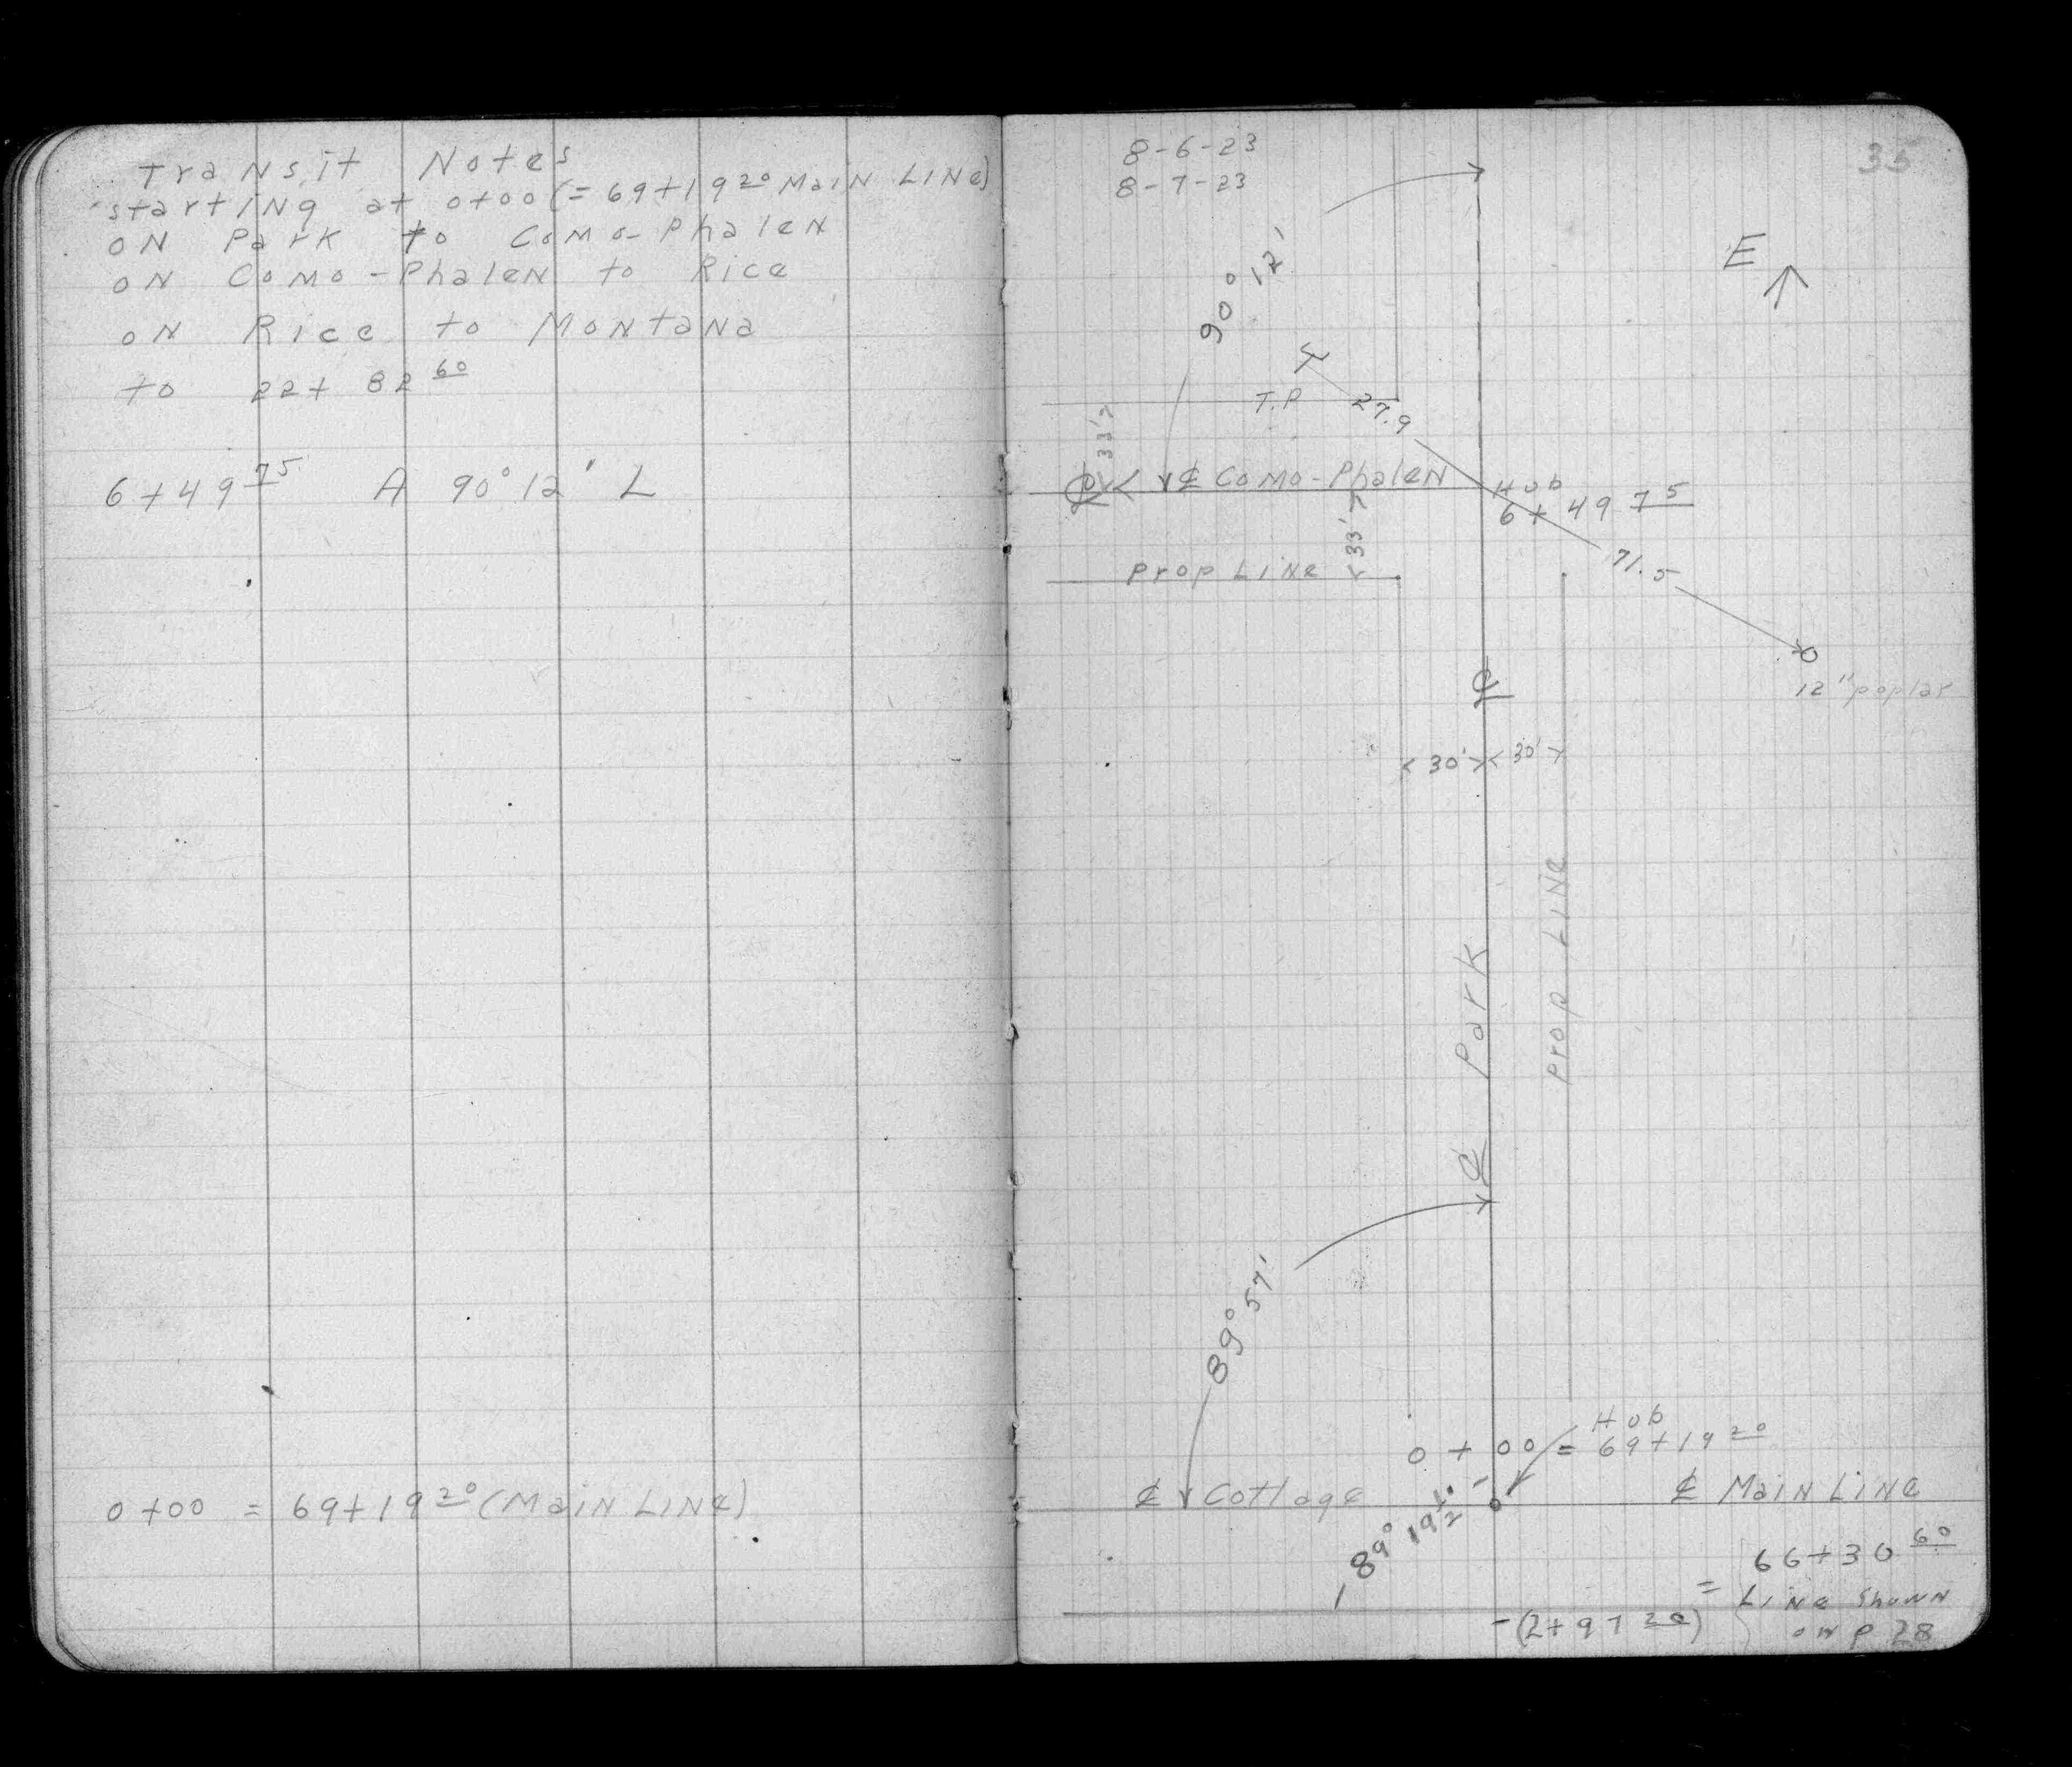 Transit Notes
starting at 0+00 (= 69+19 20 Main Line)
on Park to Como-Phalen
on Como-Phalen to Rice
on Rice to Montana
to 22+82 60
6+49 75 A 90° 12' L
0+00 = 69+19 20 (Main Line)
8-6-23
8-7-23
35
E
90° 12'
T.P
27.9
33'
₵ Como-Phalen
Hub
6+49 75
33'
71.5
Prop Line
12" poplar
30' 30'
Prop Line
₵ Park
89° 57'
Hub
0+00 = 69+19 20
₵ Cottage
₵ Main Line
89° 19 1/2'
66+30 60
= Line Shown
-(2+97 20)
on P 28